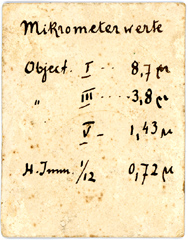 Mikrometerwerte
Object. I -- 8,7 µ
" III ---- 3,8 µ
V -- 1,43 µ
H. Imm. 1/12 0,72 µ